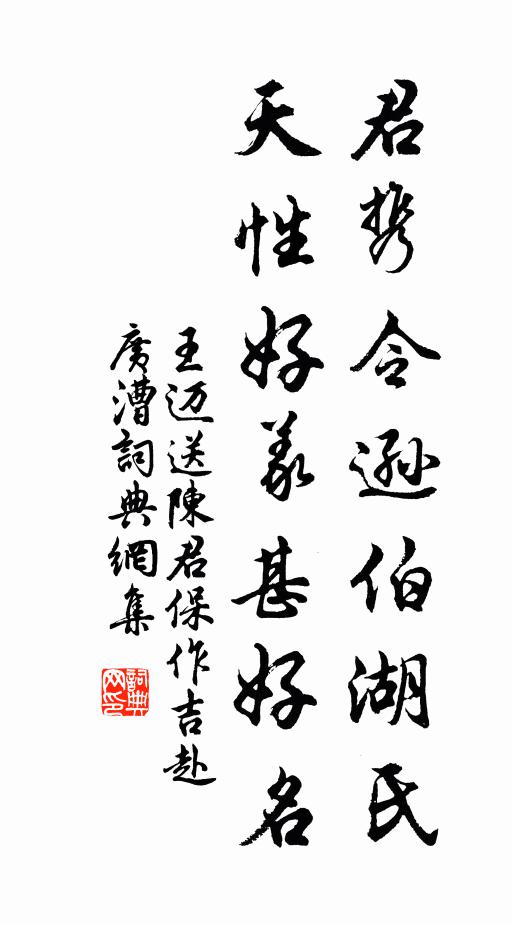 君携令逊伯湖氏
天性好義甚好名
王迈送陳君保作吉赴
廣漕詞典網集
詞典網印